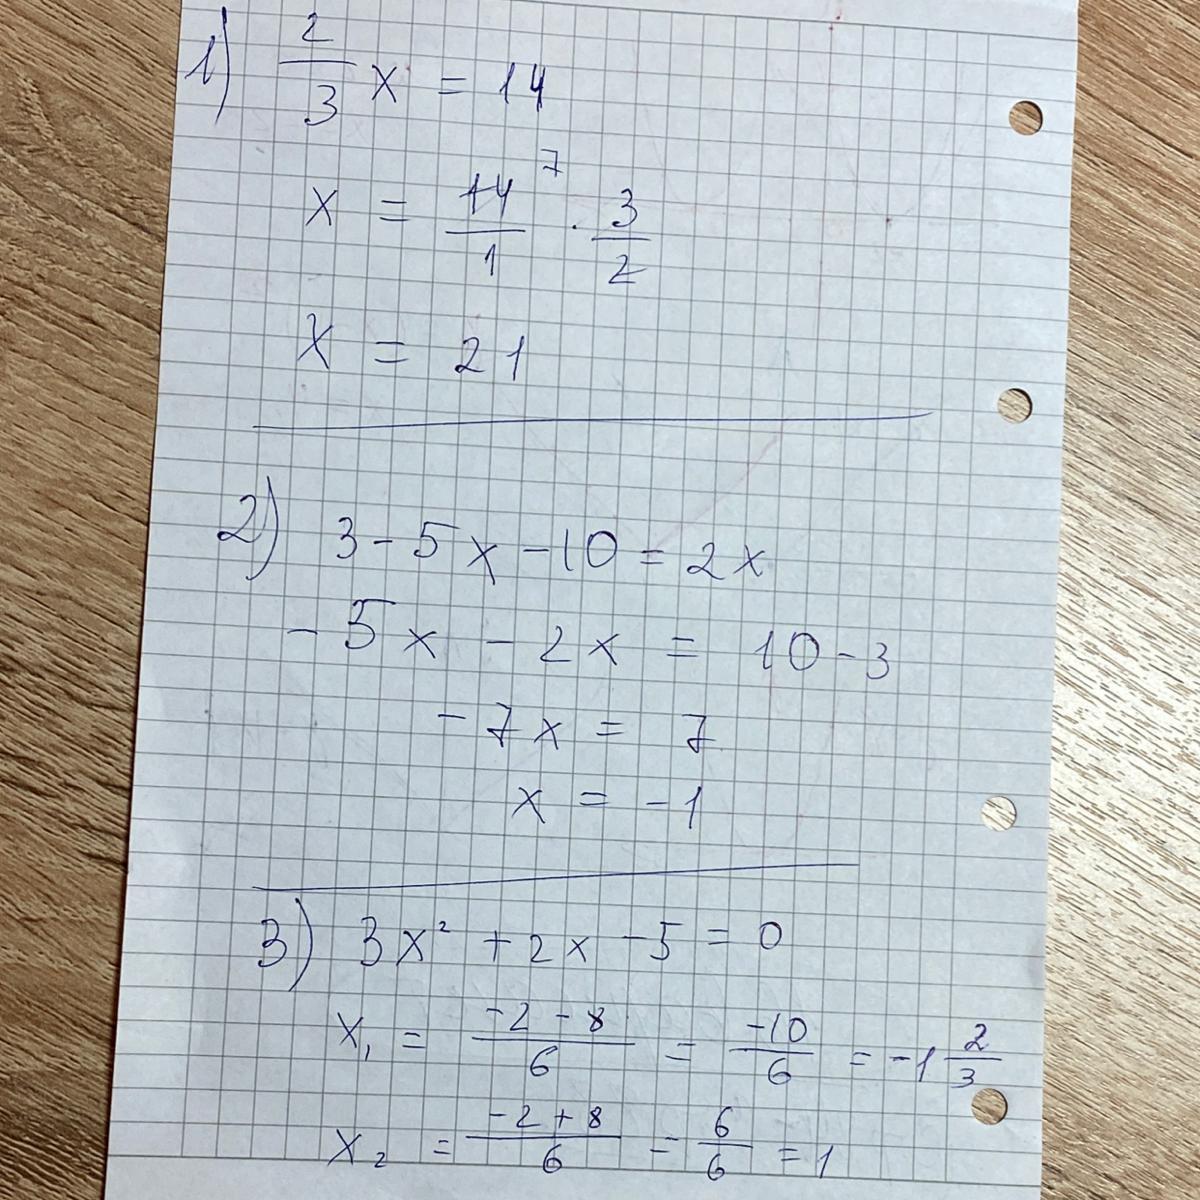 1) 2/3 x = 14
x = 14/1 7 · 3/2
x = 21
2) 3 - 5x - 10 = 2x
- 5x - 2x = 10 - 3
- 7x = 7
x = - 1
3) 3x² + 2x - 5 = 0
x₁ = -2 - 8/6 = -10/6 = -1 2/3
x₂ = -2 + 8/6 - 6/6 = 1